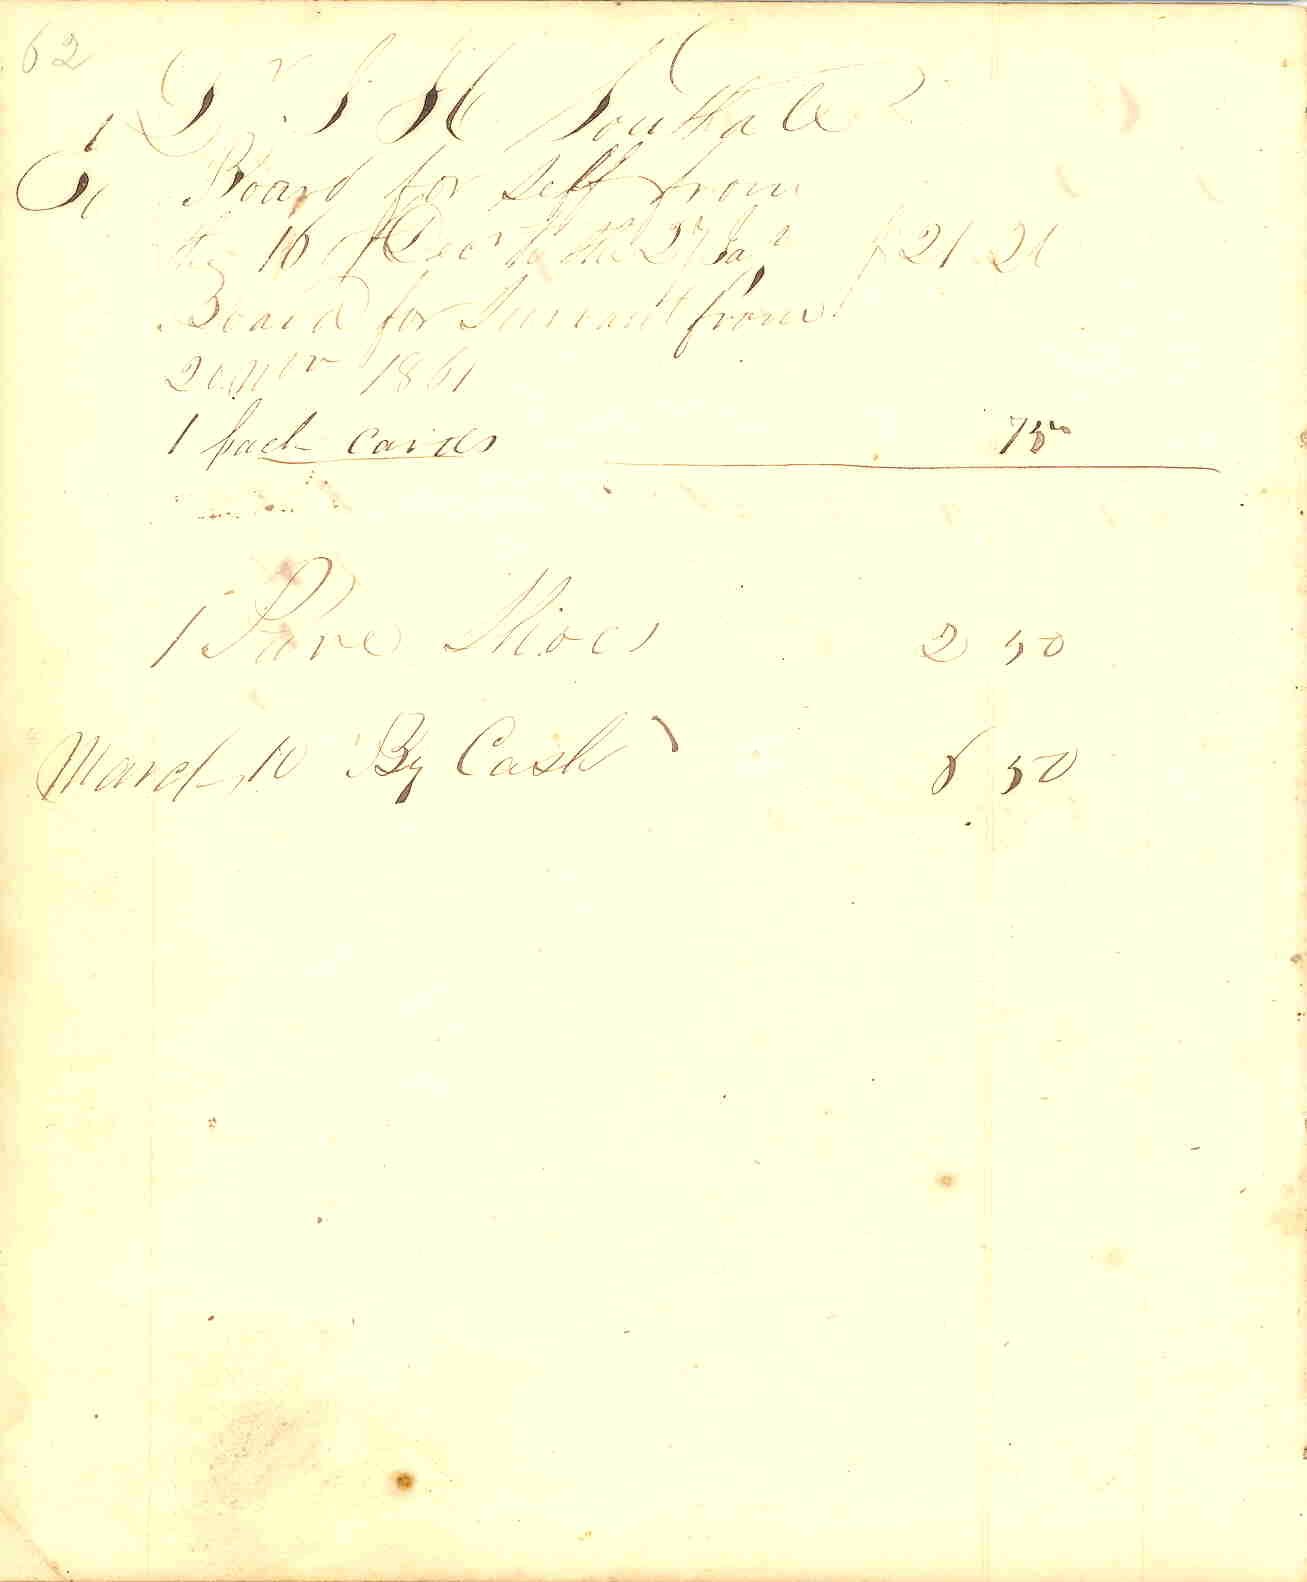 62
Dr S H Southate
To Board for Self from
the 16 of Decr to the 27 Jar $ 21 21
Board for Servant from
20 Novr 1861
1 pack cards 75
1 Pare Shoes 2 50
March 10 By Cash 8 50